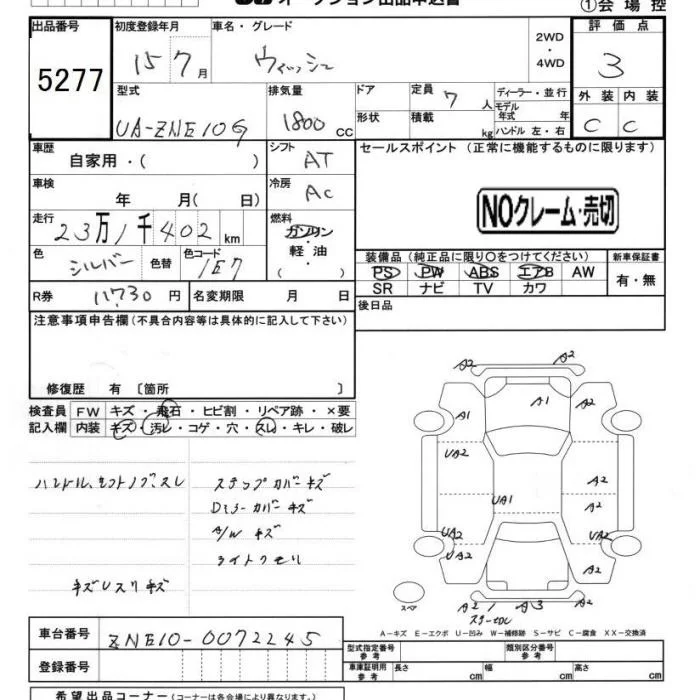 オークション出品申込書
①会場控
出品番号 初度登録年月 車名・グレード 評価点
5277 15 7月 ウィッシュ 2WD・4WD 3
型式 排気量 ドア 定員 7人 ディーラー・並行 外装 内装
UA-ZNE10G 1800cc 形状 積載 kg モデル年式 年 C C
ハンドル 左・右
車歴 シフト セールスポイント（正常に機能するものに限ります）
自家用・（ ） AT
車検 冷房
年 月（ 日） AC
NOクレーム・売切
走行 燃料
23万1千402km ガソリン
軽油
色 シルバー 色替 色コード 1E7 ・（ ）
装備品（純正品に限り○をつけてください） 新車保証書
PS PW ABS エアB AW 有・無
SR ナビ TV カワ
R券 11,730円 名変期限 月 日 後日品
注意事項申告欄（不具合内容等は具体的に記入して下さい）
修復歴 有〔箇所 〕
検査員 FW キズ・飛石・ヒビ割・リペア跡・×要
記入欄 内装 キズ・汚レ・コゲ・穴・スレ・キレ・破レ
ハンドル、シフトノブ、スレ ステップカバーキズ
Dミラーカバーキズ
A/W キズ
ライトクモリ
キズUスリキズ
A2 A2
A2 A1 A2
A1
UA2
A2
UA1 A2
UA2 UA2
UA2 A2
A2 A2 1 A3 A2
スペア
A－キズ E－エクボ U－凹み W－補修跡 S－サビ C－腐食 XX－交換済
車台番号 ZNE10-0072245
型式指定番号 参考 類別区分番号 参考
登録番号 車庫証明用 参考 長さ cm 幅 cm 高さ cm
希望出品コーナー（コーナーは各会場により異なります）